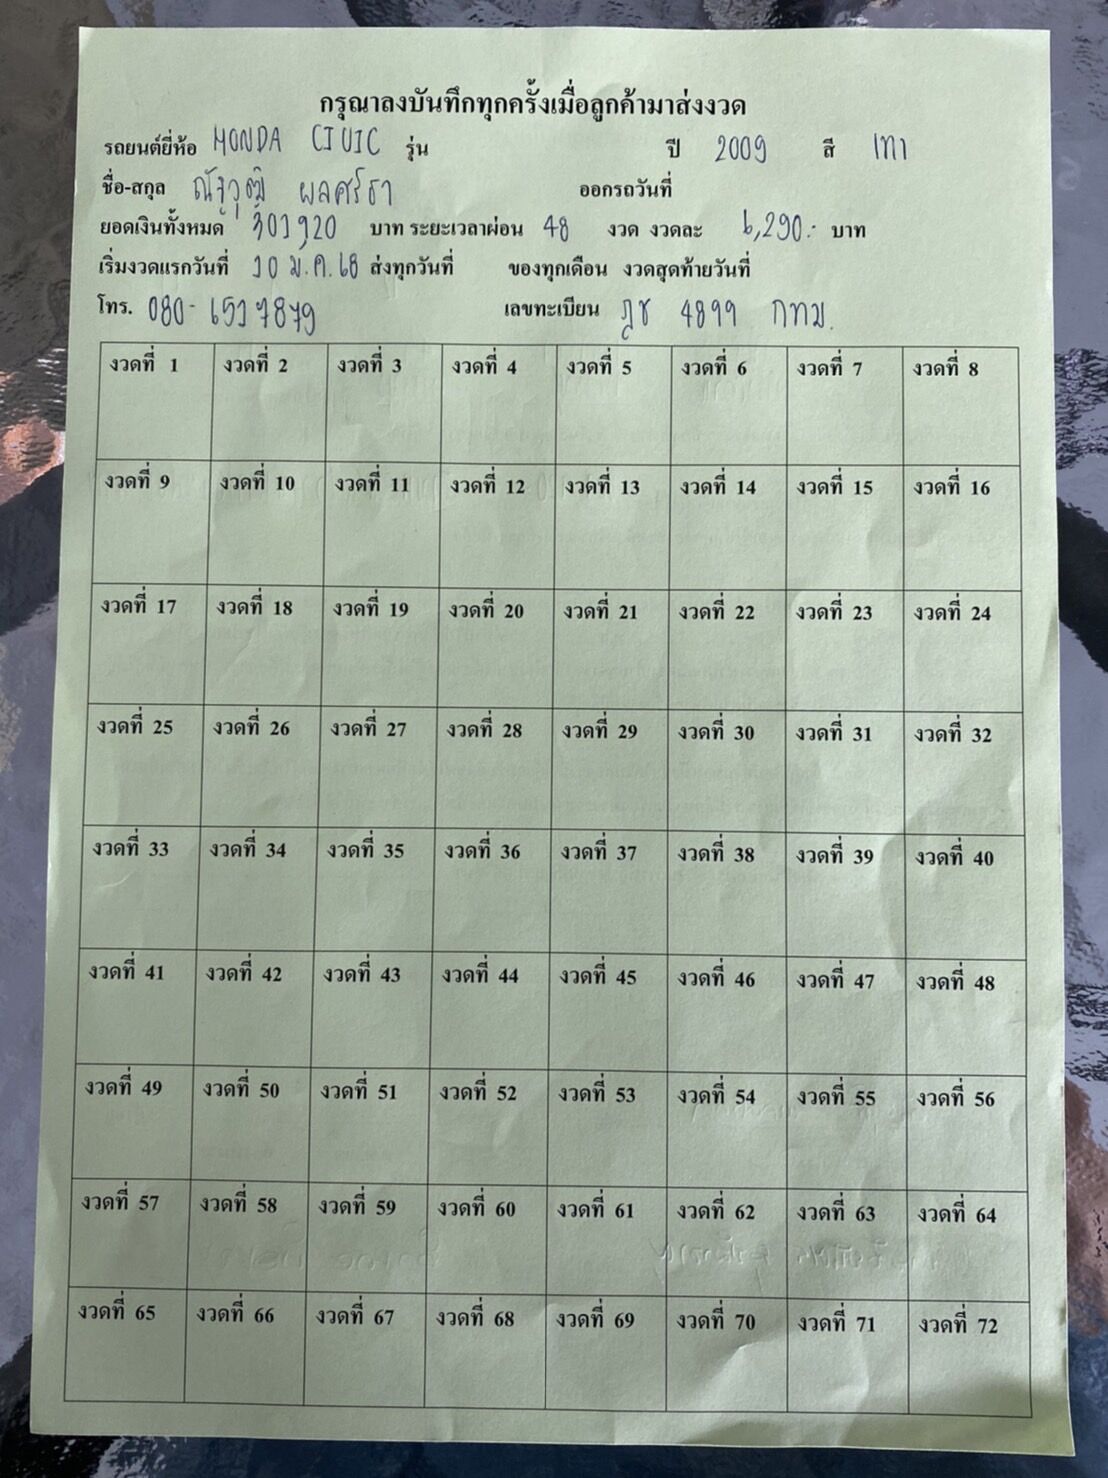 กรุณาลงบันทึกทุกครั้งเมื่อลูกค้ามาส่งงวด
รถยนต์ยี่ห้อ HONDA CIVIC รุ่น ปี 2009 สี เทา
ชื่อ-สกุล ณัฐวุฒิ ผลศรัธา ออกรถวันที่
ยอดเงินทั้งหมด 301920 บาท ระยะเวลาผ่อน 48 งวด งวดละ 6,290.- บาท
เริ่มงวดแรกวันที่ 10 ม.ค.68 ส่งทุกวันที่ ของทุกเดือน งวดสุดท้ายวันที่
โทร. 080-6517879 เลขทะเบียน ฎช 4899 กทม.
งวดที่ 1 งวดที่ 2 งวดที่ 3 งวดที่ 4 งวดที่ 5 งวดที่ 6 งวดที่ 7 งวดที่ 8
งวดที่ 9 งวดที่ 10 งวดที่ 11 งวดที่ 12 งวดที่ 13 งวดที่ 14 งวดที่ 15 งวดที่ 16
งวดที่ 17 งวดที่ 18 งวดที่ 19 งวดที่ 20 งวดที่ 21 งวดที่ 22 งวดที่ 23 งวดที่ 24
งวดที่ 25 งวดที่ 26 งวดที่ 27 งวดที่ 28 งวดที่ 29 งวดที่ 30 งวดที่ 31 งวดที่ 32
งวดที่ 33 งวดที่ 34 งวดที่ 35 งวดที่ 36 งวดที่ 37 งวดที่ 38 งวดที่ 39 งวดที่ 40
งวดที่ 41 งวดที่ 42 งวดที่ 43 งวดที่ 44 งวดที่ 45 งวดที่ 46 งวดที่ 47 งวดที่ 48
งวดที่ 49 งวดที่ 50 งวดที่ 51 งวดที่ 52 งวดที่ 53 งวดที่ 54 งวดที่ 55 งวดที่ 56
งวดที่ 57 งวดที่ 58 งวดที่ 59 งวดที่ 60 งวดที่ 61 งวดที่ 62 งวดที่ 63 งวดที่ 64
งวดที่ 65 งวดที่ 66 งวดที่ 67 งวดที่ 68 งวดที่ 69 งวดที่ 70 งวดที่ 71 งวดที่ 72